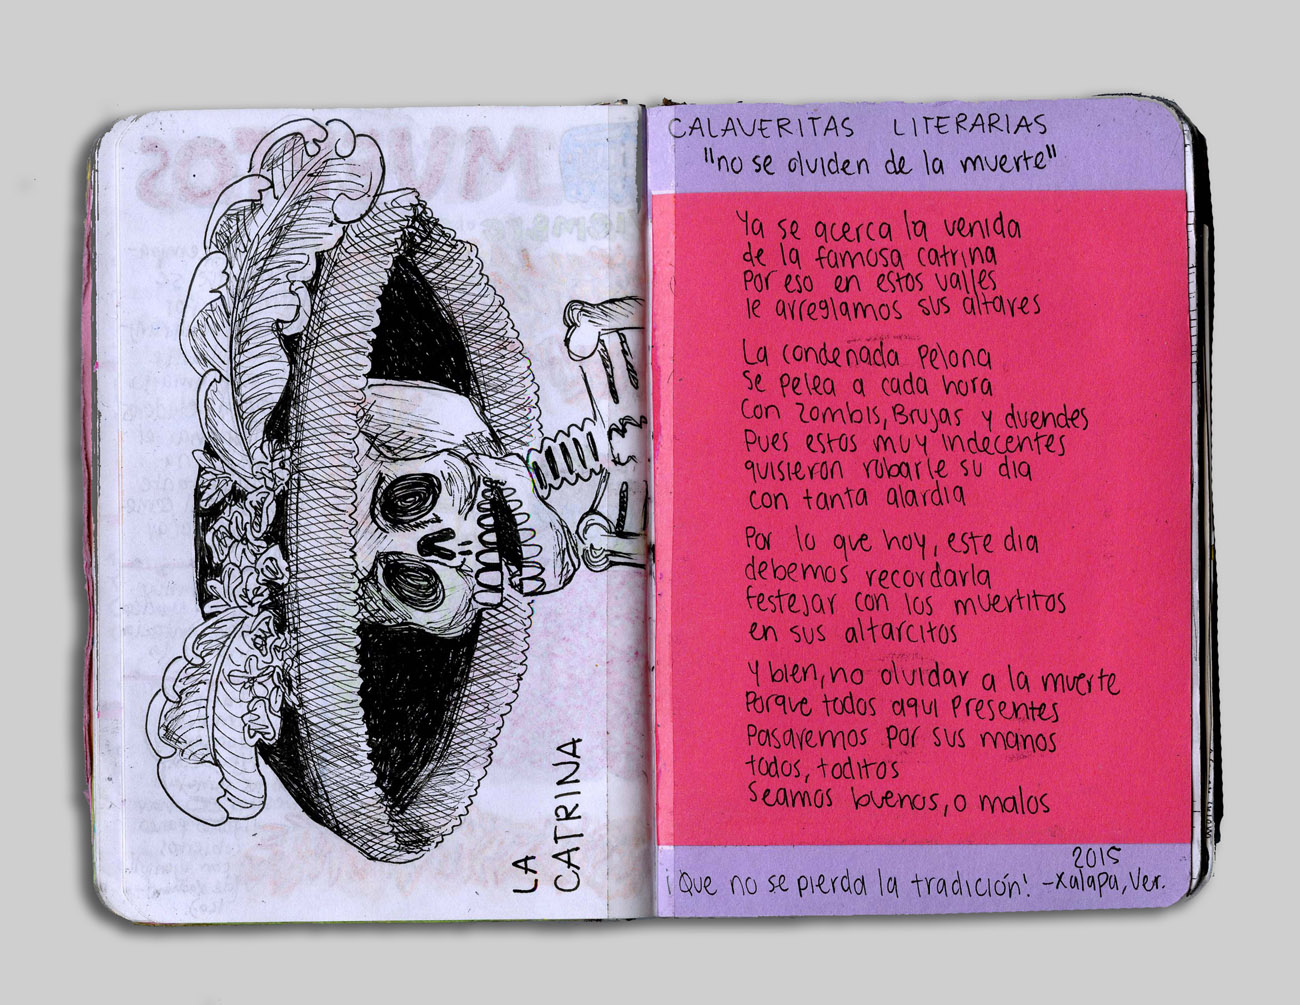 LA
CATRINA
CALAVERITAS LITERARIAS
"no se olviden de la muerte"
Ya se acerca la venida
de la famosa catrina
Por eso en estos valles
le arreglamos sus altares
La condenada Pelona
se pelea a cada hora
Con Zombis, Brujas y duendes
Pues estos muy indecentes
quisieron robarle su dia
con tanta alardia
Por lo que hoy, este dia
debemos recordarla
festejar con los muertitos
en sus altarcitos
Y bien, no olvidar a la muerte
Porque todos aqui Presentes
Pasaremos por sus manos
todos, toditos
Seamos buenos, o malos
2015
¡Que no se pierda la tradición! -Xalapa, Ver.